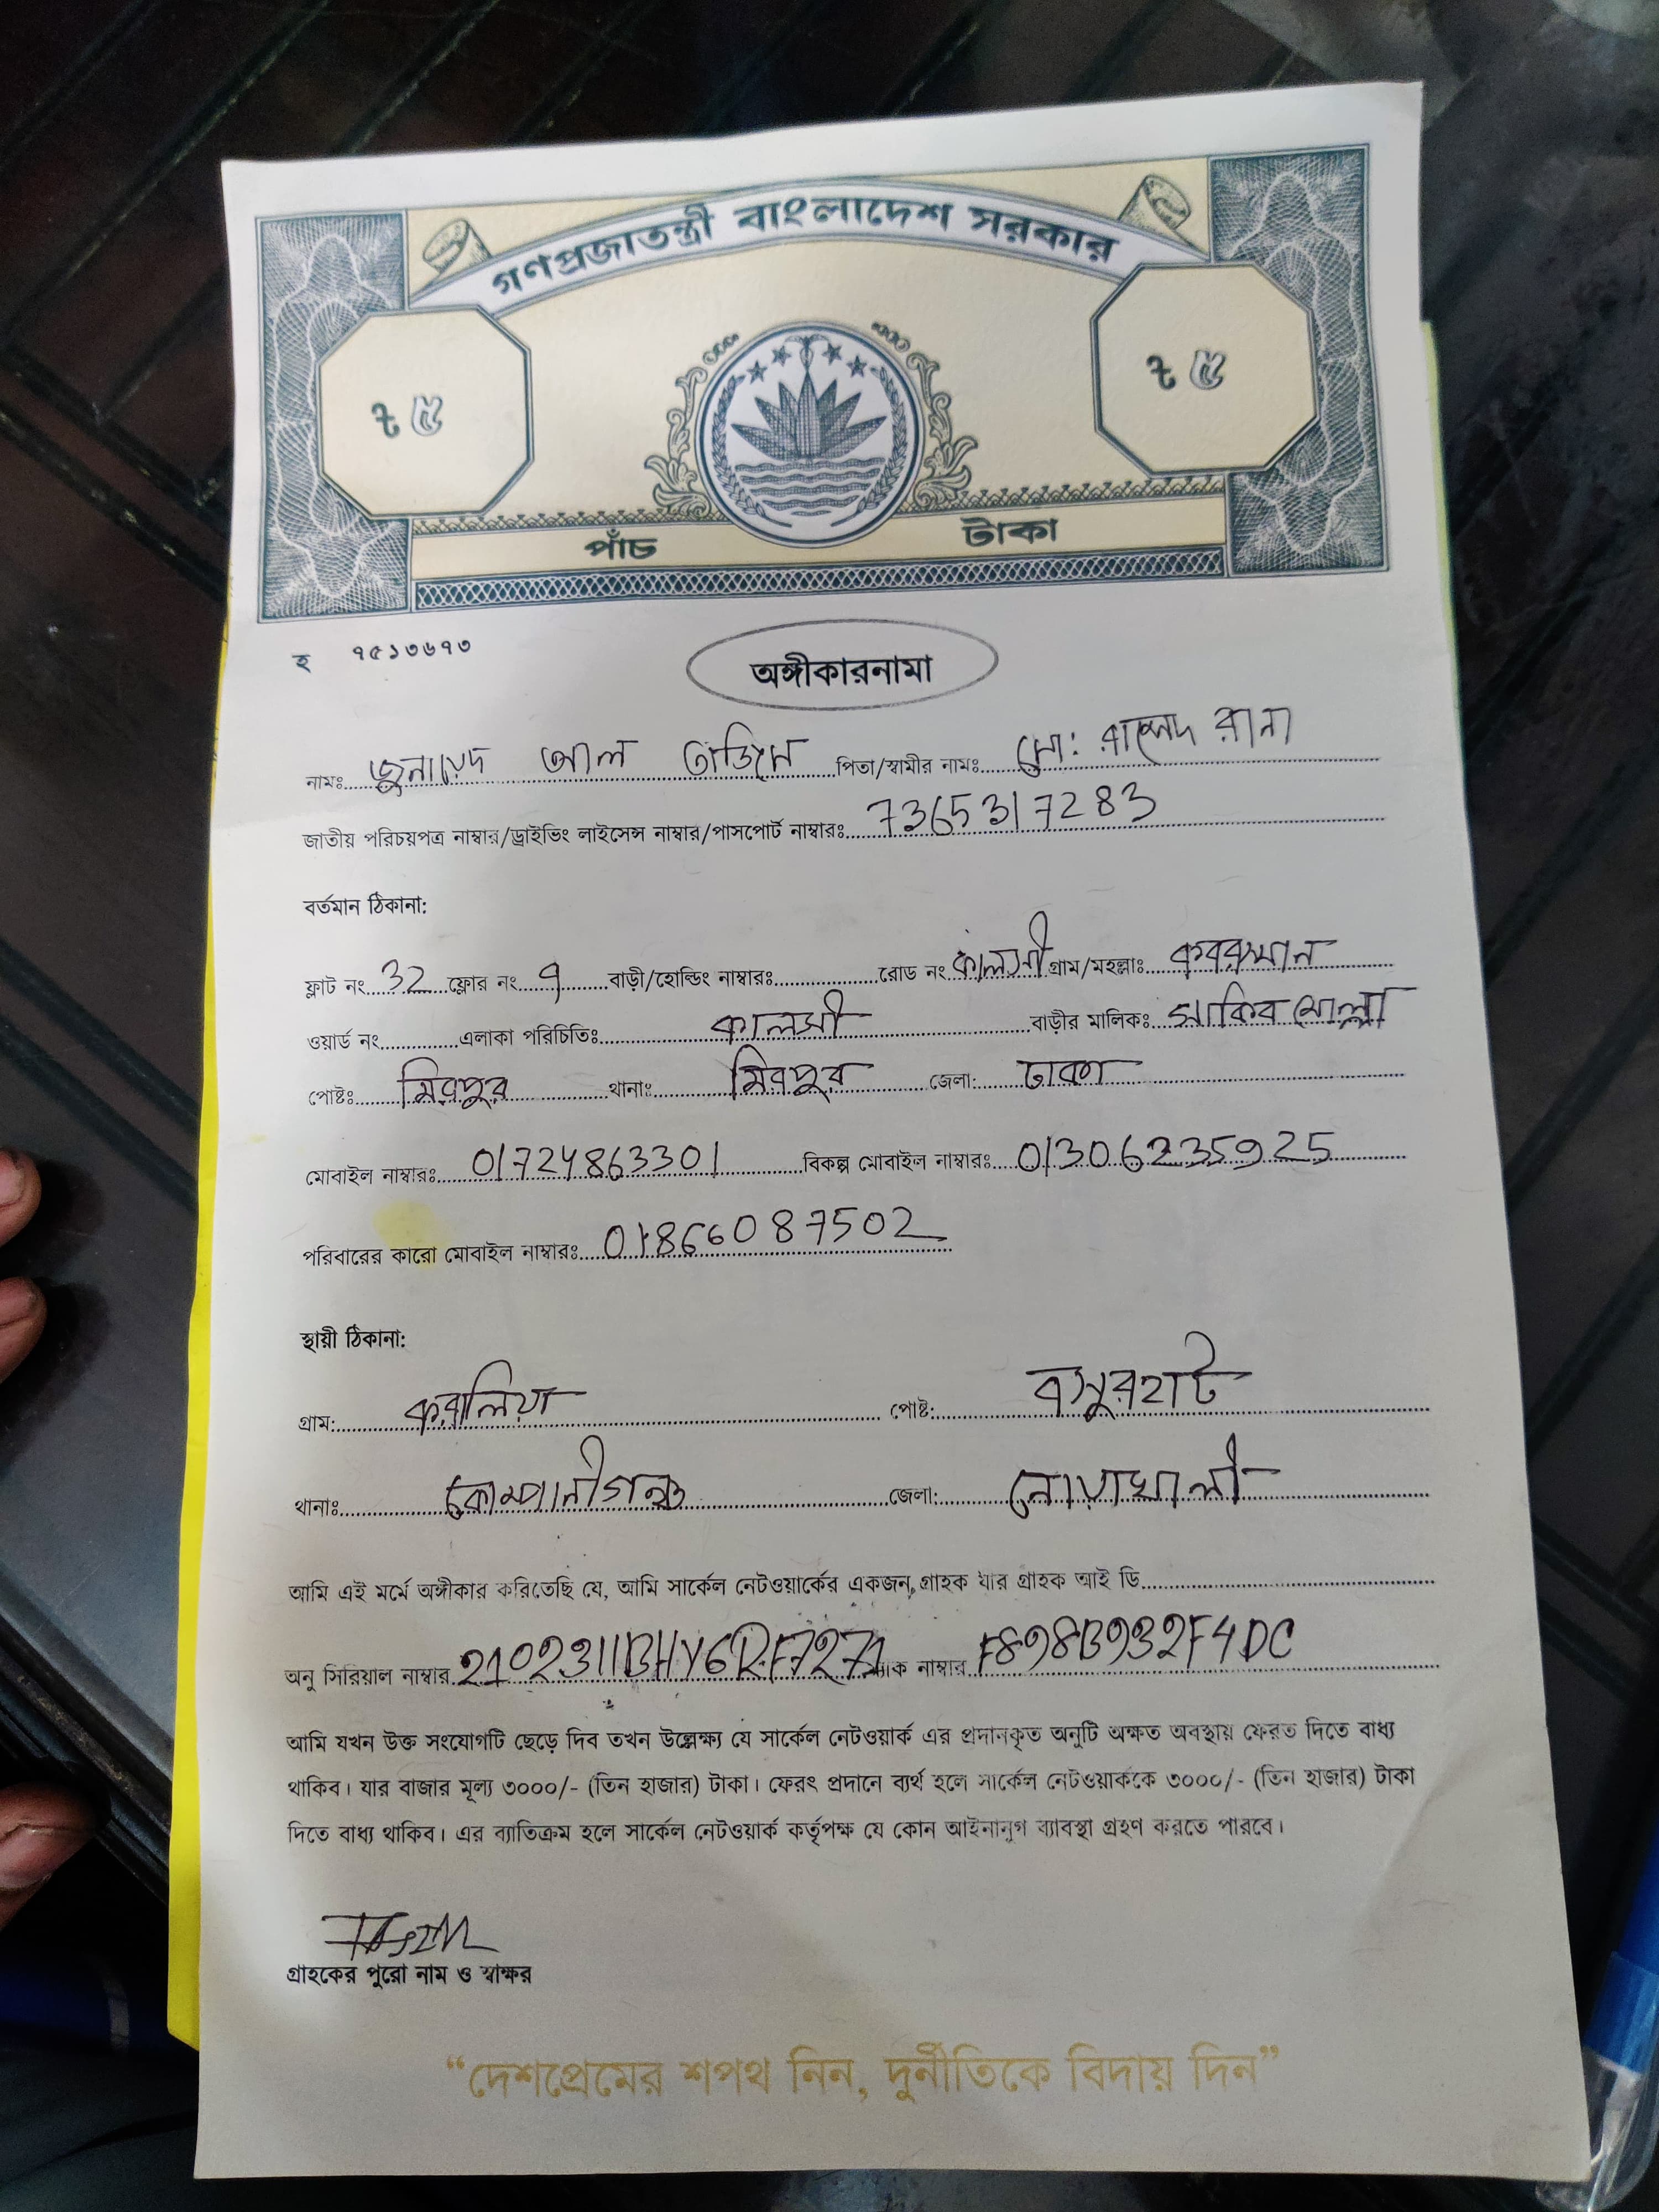 গণপ্রজাতন্ত্রী বাংলাদেশ সরকার
৳ ৫ ৳ ৫
পাঁচ টাকা
হ ৭৫১৩৬৭৩
অঙ্গীকারনামা
নামঃ জুনায়েদ আল তাজিম পিতা/স্বামীর নামঃ মো: রাশেদ রানা
জাতীয় পরিচয়পত্র নাম্বার/ড্রাইভিং লাইসেন্স নাম্বার/পাসপোর্ট নাম্বারঃ 7365317283
বর্তমান ঠিকানা:
ফ্লাট নং 32 ফ্লোর নং ৭ বাড়ী/হোল্ডিং নাম্বারঃ রোড নং কালসী গ্রাম/মহল্লাঃ কবরস্থান
ওয়ার্ড নং এলাকা পরিচিতিঃ কালসী বাড়ীর মালিকঃ সাকিব মোল্লা
পোষ্টঃ মিরপুর থানাঃ মিরপুর জেলা: ঢাকা
মোবাইল নাম্বারঃ 01724863301 বিকল্প মোবাইল নাম্বারঃ 01306235925
পরিবারের কারো মোবাইল নাম্বারঃ 01866087502
স্থায়ী ঠিকানা:
গ্রাম: করালিয়া পোষ্ট: বসুরহাট
থানাঃ কোম্পানীগঞ্জ জেলা: নোয়াখালী
আমি এই মর্মে অঙ্গীকার করিতেছি যে, আমি সার্কেল নেটওয়ার্কের একজন গ্রাহক যার গ্রাহক আই ডি
অনু সিরিয়াল নাম্বার ম্যাক নাম্বার F898B932F4DC
আমি যখন উক্ত সংযোগটি ছেড়ে দিব তখন উল্লেক্ষ্য যে সার্কেল নেটওয়ার্ক এর প্রদানকৃত অনুটি অক্ষত অবস্থায় ফেরত দিতে বাধ্য
থাকিব। যার বাজার মূল্য ৩০০০/- (তিন হাজার) টাকা। ফেরৎ প্রদানে ব্যর্থ হলে সার্কেল নেটওয়ার্ককে ৩০০০/- (তিন হাজার) টাকা
দিতে বাধ্য থাকিব। এর ব্যাতিক্রম হলে সার্কেল নেটওয়ার্ক কর্তৃপক্ষ যে কোন আইনানুগ ব্যাবস্থা গ্রহণ করতে পারবে।
গ্রাহকের পুরো নাম ও স্বাক্ষর
“দেশপ্রেমের শপথ নিন, দুর্নীতিকে বিদায় দিন”